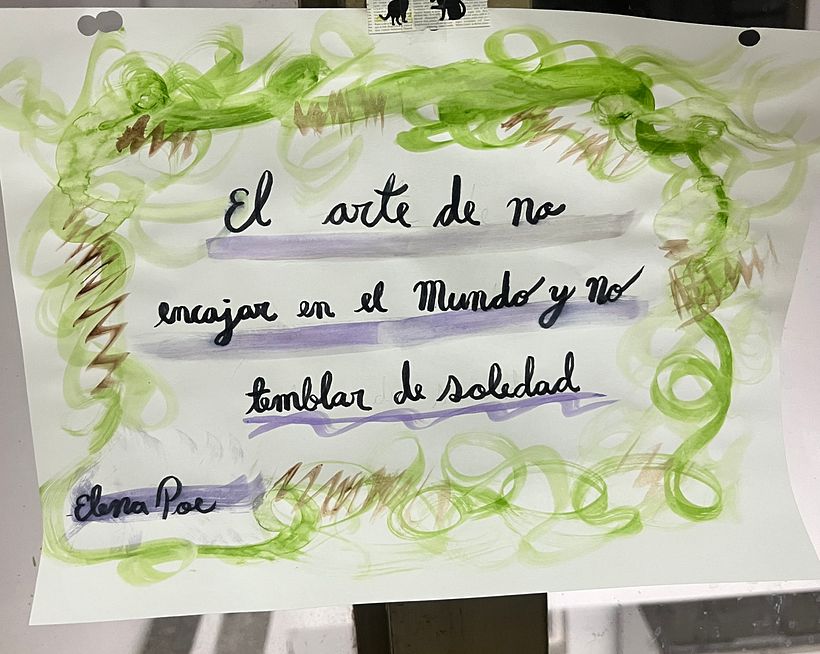 El arte de no
encajar en el Mundo y no
temblar de soledad
Elena Poe